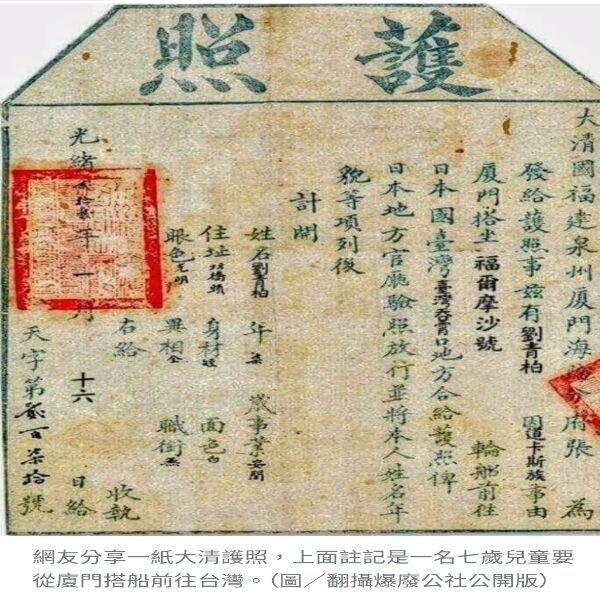 護照
大清國福建泉州厦門海防分府張 為
發給護照事茲有劉青柏 因道卡斯族事由
厦門搭坐福爾摩沙號 輪船前往
日本國臺灣臺灣吞霄口地方合給護照俾
日本地方官廳驗照放行並將本人姓名年
貌等項列後
計開
姓名劉青柏 年柒歲事業安閒
住址 橋頭 身材 面色白
眼色光明 異相全 職銜
右給 收執
光緒 拾 年一月 十六 日給
天字第貳百柒拾號
網友分享一紙大清護照，上面註記是一名七歲兒童要
從廈門搭船前往台灣。(圖／翻攝爆廢公社公開版)